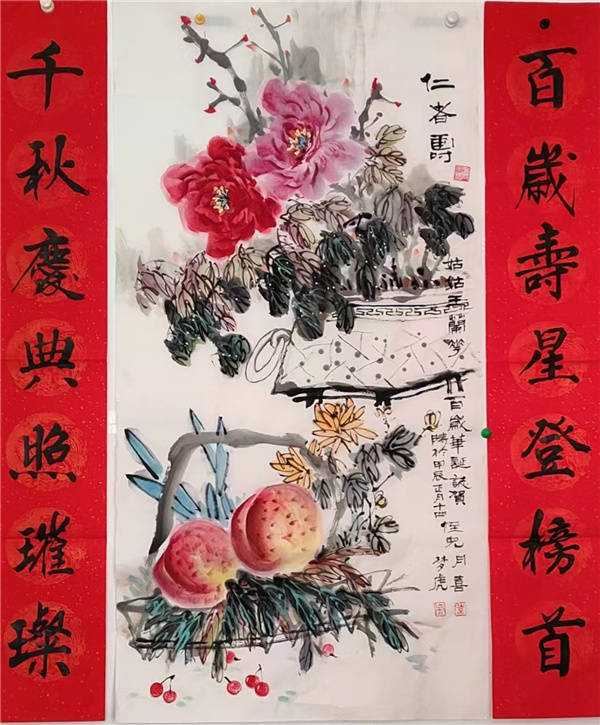 百歲壽星登榜首
仁者壽
姑姑王蘭百歲華誕誌賀 侄兒月喜
於甲辰正月十四 梦虎
千秋慶典照璀璨